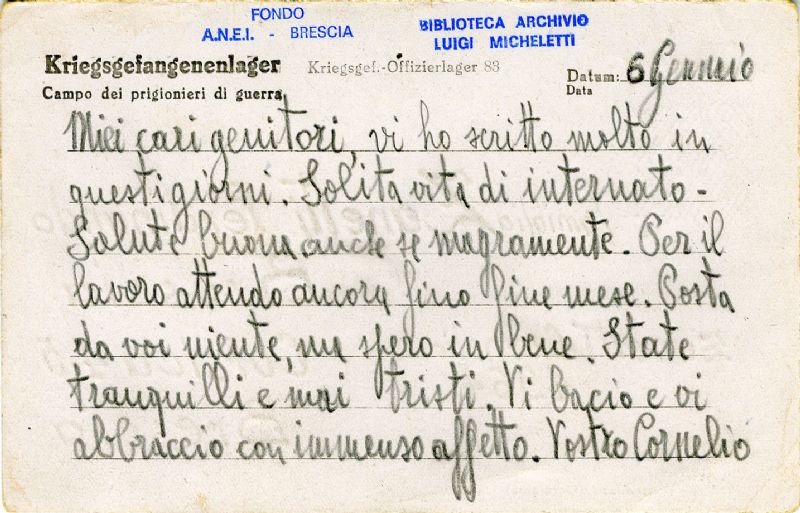 FONDO
A.N.E.I. - BRESCIA
BIBLIOTECA ARCHIVIO
LUIGI MICHELETTI
Kriegsgefangenenlager Kriegsgef.-Offizierlager 83
Campo dei prigionieri di guerra
Datum: 6 Gennaio
Data
Miei cari genitori, vi ho scritto molto in
questi giorni. Solita vita di internato-
Salute buona, anche se magramente. Per il
lavoro attendo ancora fino fine mese. Posta
da voi niente, ma spero in bene. State
tranquilli e mai tristi. Vi bacio e vi
abbraccio con immenso affetto. Vostro Cornelio